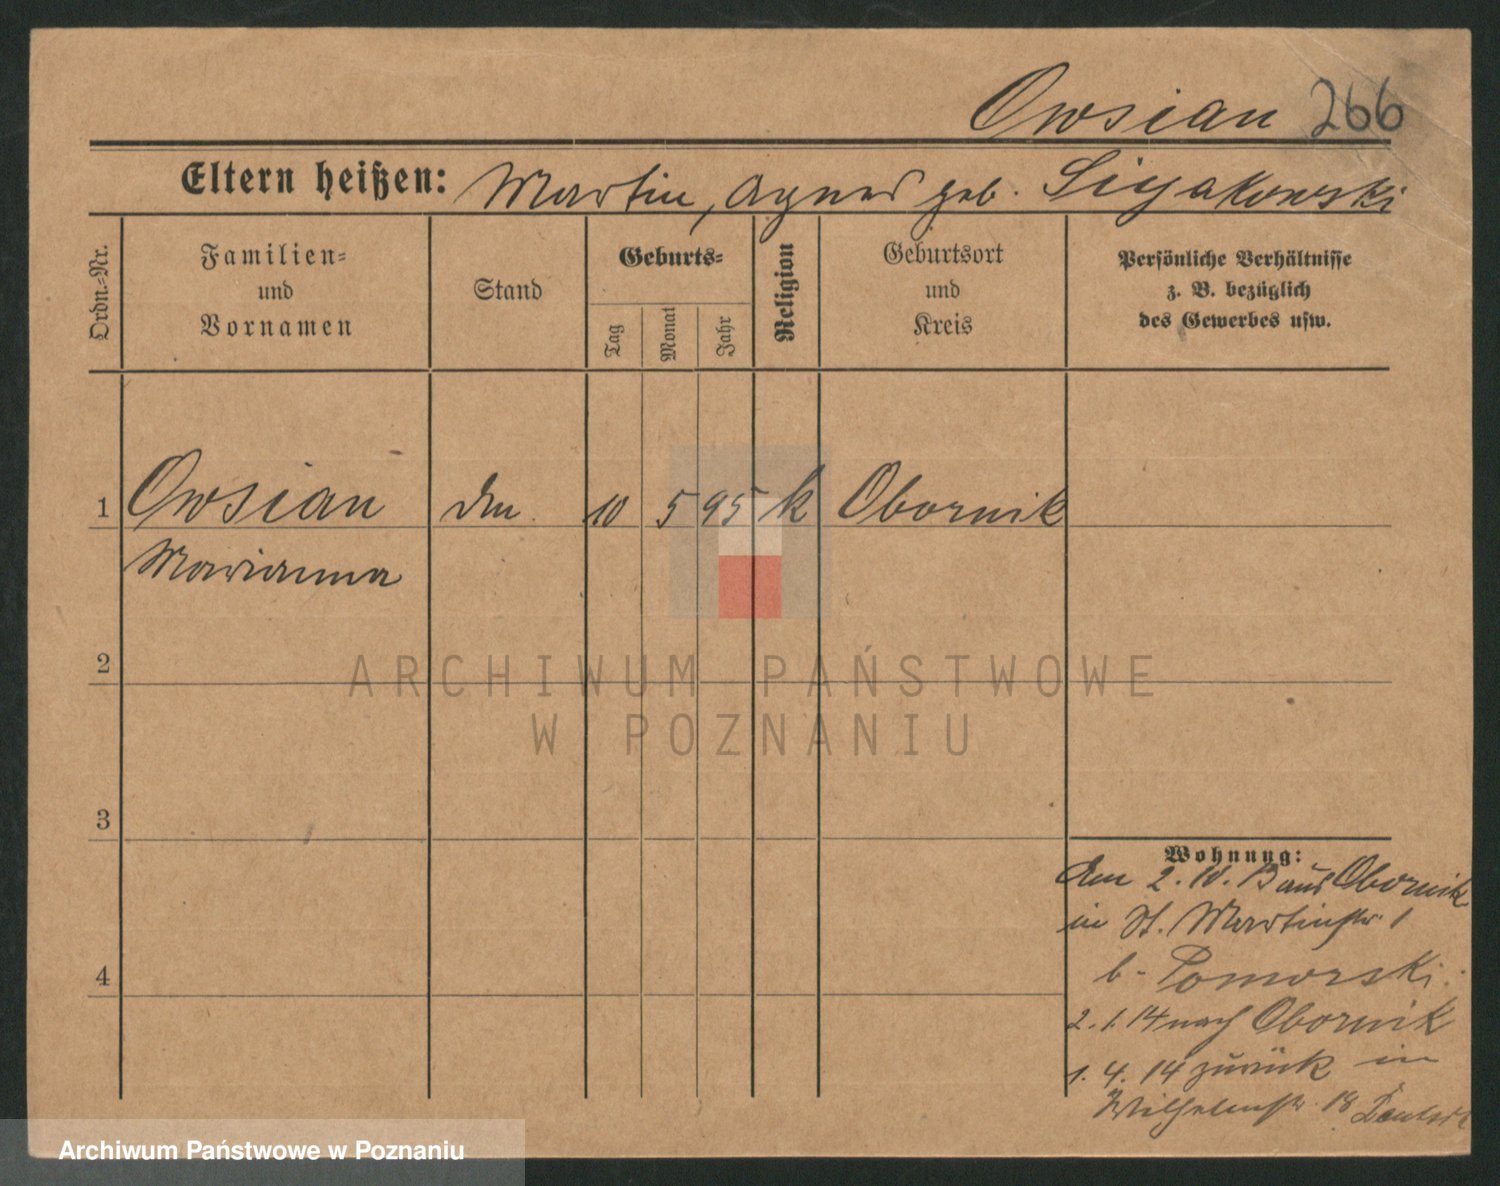 Owsian 266
Eltern heißen: Martin, Agnes geb.
Ordn.-Nr.
Familien-
und
Vornamen
Stand
Geburts-
Tag
Monat
Jahr
Religion
Geburtsort
und
Kreis
Persönliche Verhältnisse
z. B. bezüglich
des Gewerbes usw.
1 Owsian 10 5 95 k Obornik
Marianna
2
3
4
Wohnung:
Am 2. 10. 13 aus Obornik
in St. Martinstr. 1
b. Pomorski.
2. 1. 14 nach Obornik
1. 4. 14 zurück in
Wilhelmstr. 18
ARCHIWUM PAŃSTWOWE
W POZNANIU
Archiwum Państwowe w Poznaniu